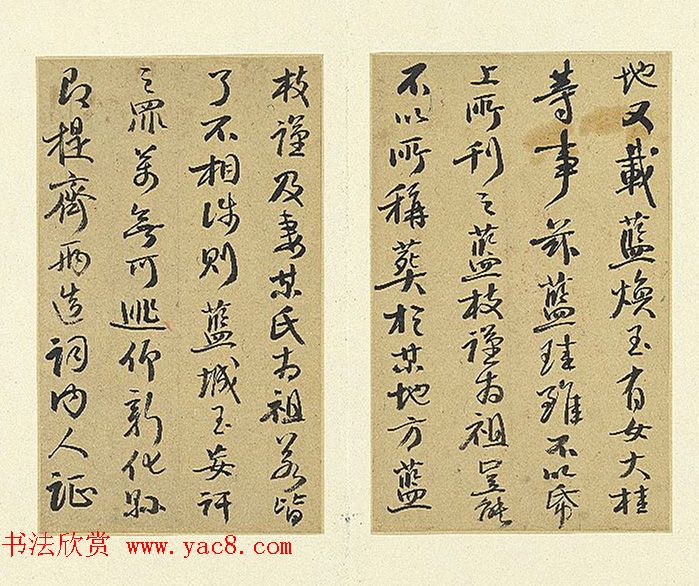 地又載藍煥玉有女大桂
等事茲藍珪雖不以
上所刊之藍枝謹為祖
不以所稱葬於某地方藍
枝謹及妻某氏為祖若皆
了不相涉則藍城玉妄訐
之罪萬無可逃仰新化縣
即提齊兩造詞內人証
书法欣赏 www.yac8.com